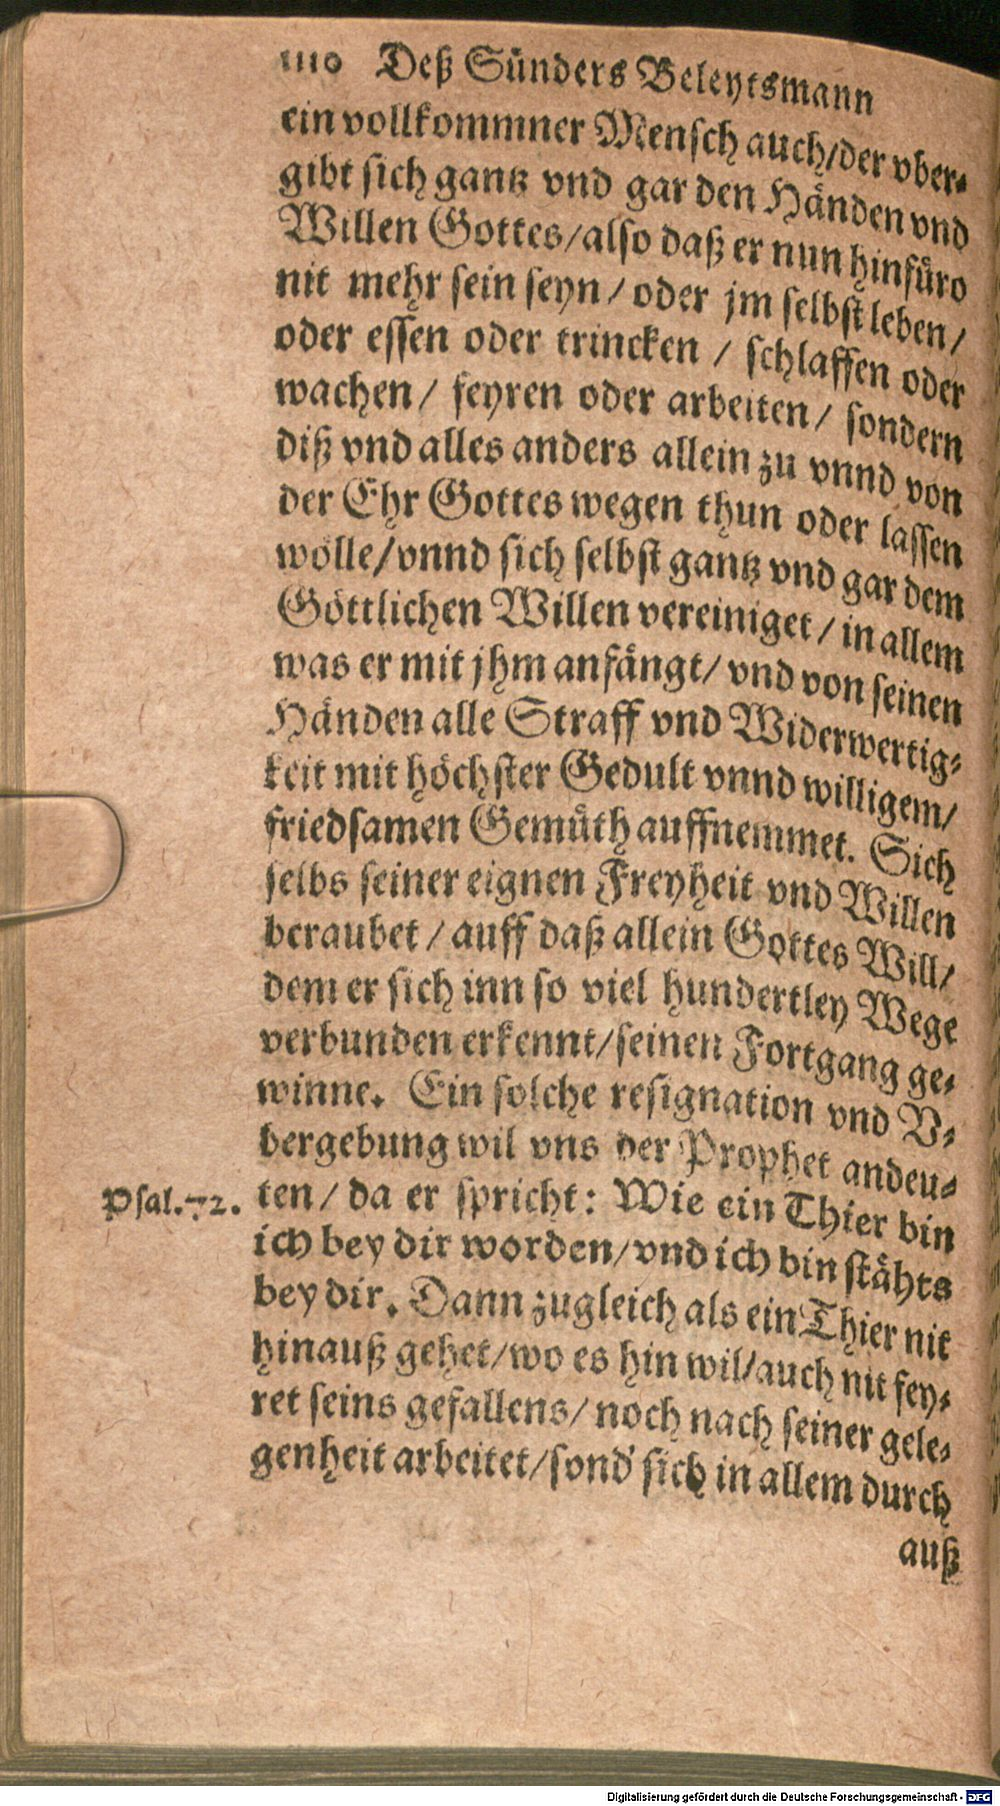 1110 Deß Sünders Beleytsmann
ein vollkommner Mensch auch/der vber-
gibt sich gantz vnd gar den Händen vnd
Willen Gottes/also daß er nun hinfüro
nit mehr sein seyn/oder jm selbst leben/
oder essen oder trincken / schlaffen oder
wachen/ feyren oder arbeiten/ sondern
diß vnd alles anders allein zu vnnd von
der Ehr Gottes wegen thun oder lassen
wölle/vnnd sich selbst gantz vnd gar dem
Göttlichen Willen vereiniget/in allem
was er mit jhm anfängt/vnd von seinen
Händen alle Straff vnd Widerwertig-
keit mit höchster Gedult vnnd willigem/
friedsamen Gemüth auffnemmet. Sich
selbs seiner eignen Freyheit vnd Willen
beraubet/auff daß allein Gottes Will/
dem er sich inn so viel hundertley Wege
verbunden erkennt/seinen Fortgang ge-
winne. Ein solche resignation vnd V-
bergebung wil vns der Prophet andeu-
Psal.72. ten/ da er spricht: Wie ein Thier bin
ich bey dir worden/vnd ich bin stähts
bey dir. Dann zugleich als ein Thier nit
hinauß gehet/wo es hin wil/auch nit fey-
ret seins gefallens/noch nach seiner gele-
genheit arbeitet/sond' sich in allem durch
auß
Digitalisierung gefördert durch die Deutsche Forschungsgemeinschaft - DFG